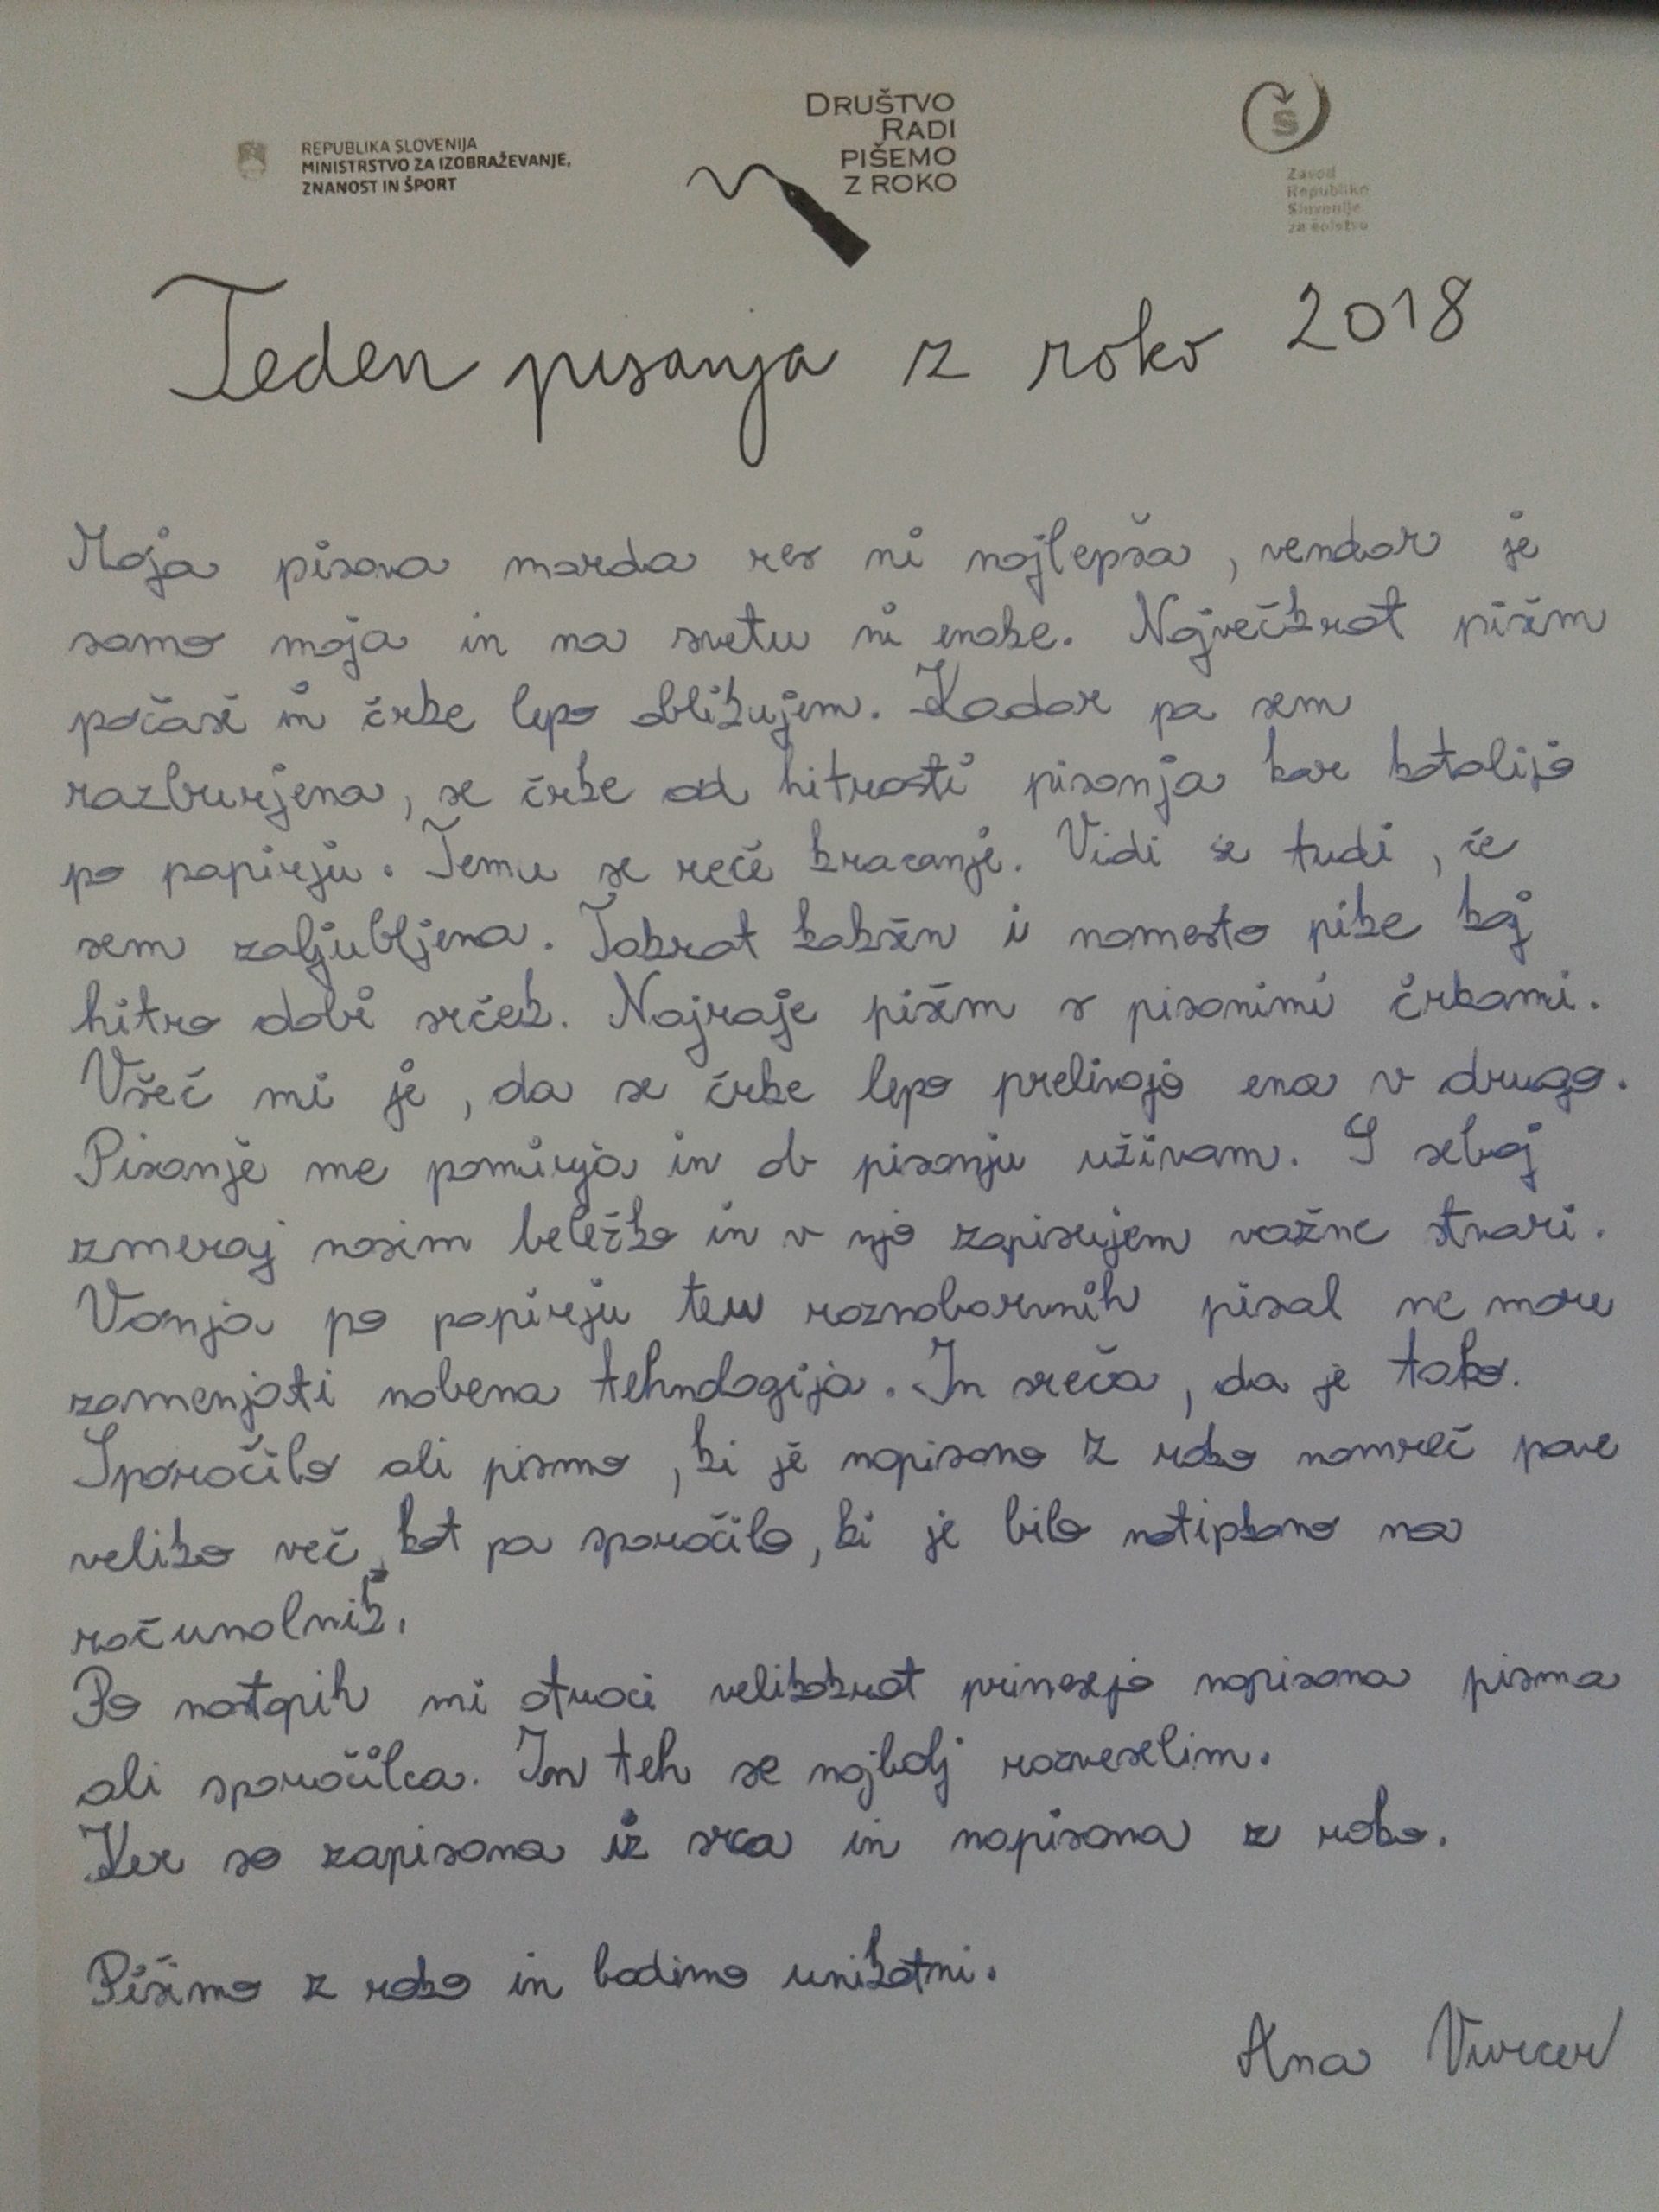 REPUBLIKA SLOVENIJA
MINISTRSTVO ZA IZOBRAŽEVANJE,
ZNANOST IN ŠPORT
DRUŠTVO
RADI
PIŠEMO
Z ROKO
Š
Zavod
Republike
Slovenije
za šolstvo
Teden pisanja z roko 2018
Moja pisava morda res ni najlepša, vendar je
samo moja in na svetu ni enake. Največkrat pišem
počasi in črke lepo oblikujem. Kadar pa sem
razburjena, se črke od hitrosti pisanja kar kotalijo
po papirju. Temu se reče kracanje. Vidi se tudi, če
sem zaljubljena. Takrat kakšen i namesto pike kaj
hitro dobi srček. Najraje pišem s pisanimi črkami.
Všeč mi je, da se črke lepo prelivajo ena v drugo.
Pisanje me pomirja in ob pisanju uživam. S seboj
zmeraj nosim beležko in v njo zapisujem važne stvari.
Vonja po papirju ter raznobarvnih pisal ne more
zamenjati nobena tehnologija. In sreča, da je tako.
Sporočilo ali pismo, ki je napisano z roko namreč pove
veliko več, kot pa sporočilo, ki je bilo natipkano na
računalnik.
Po nastopih mi otroci velikokrat prinesejo napisana pisma
ali sporočilca. In teh se najbolj razveselim.
Ker so zapisana iz srca in napisana z roko.
Pišimo z roko in bodimo unikatni.
Ana